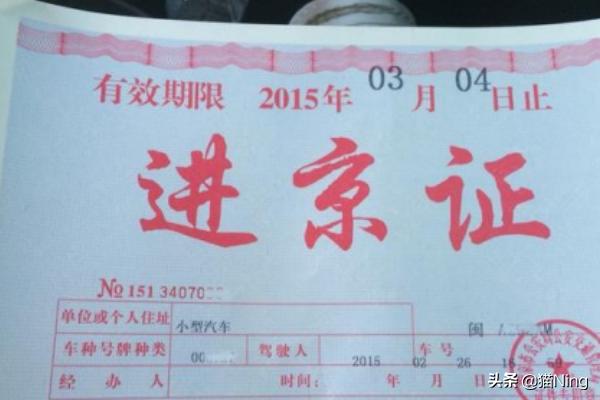 有效期限 2015年 03 月 04 日止
进京证
№ 151 34070
单位或个人住址 小型汽车 闽
车种号牌种类 00 驾驶人 2015 02 车号 26 18
经办人 时间: 年 月
头条 @猫Ning